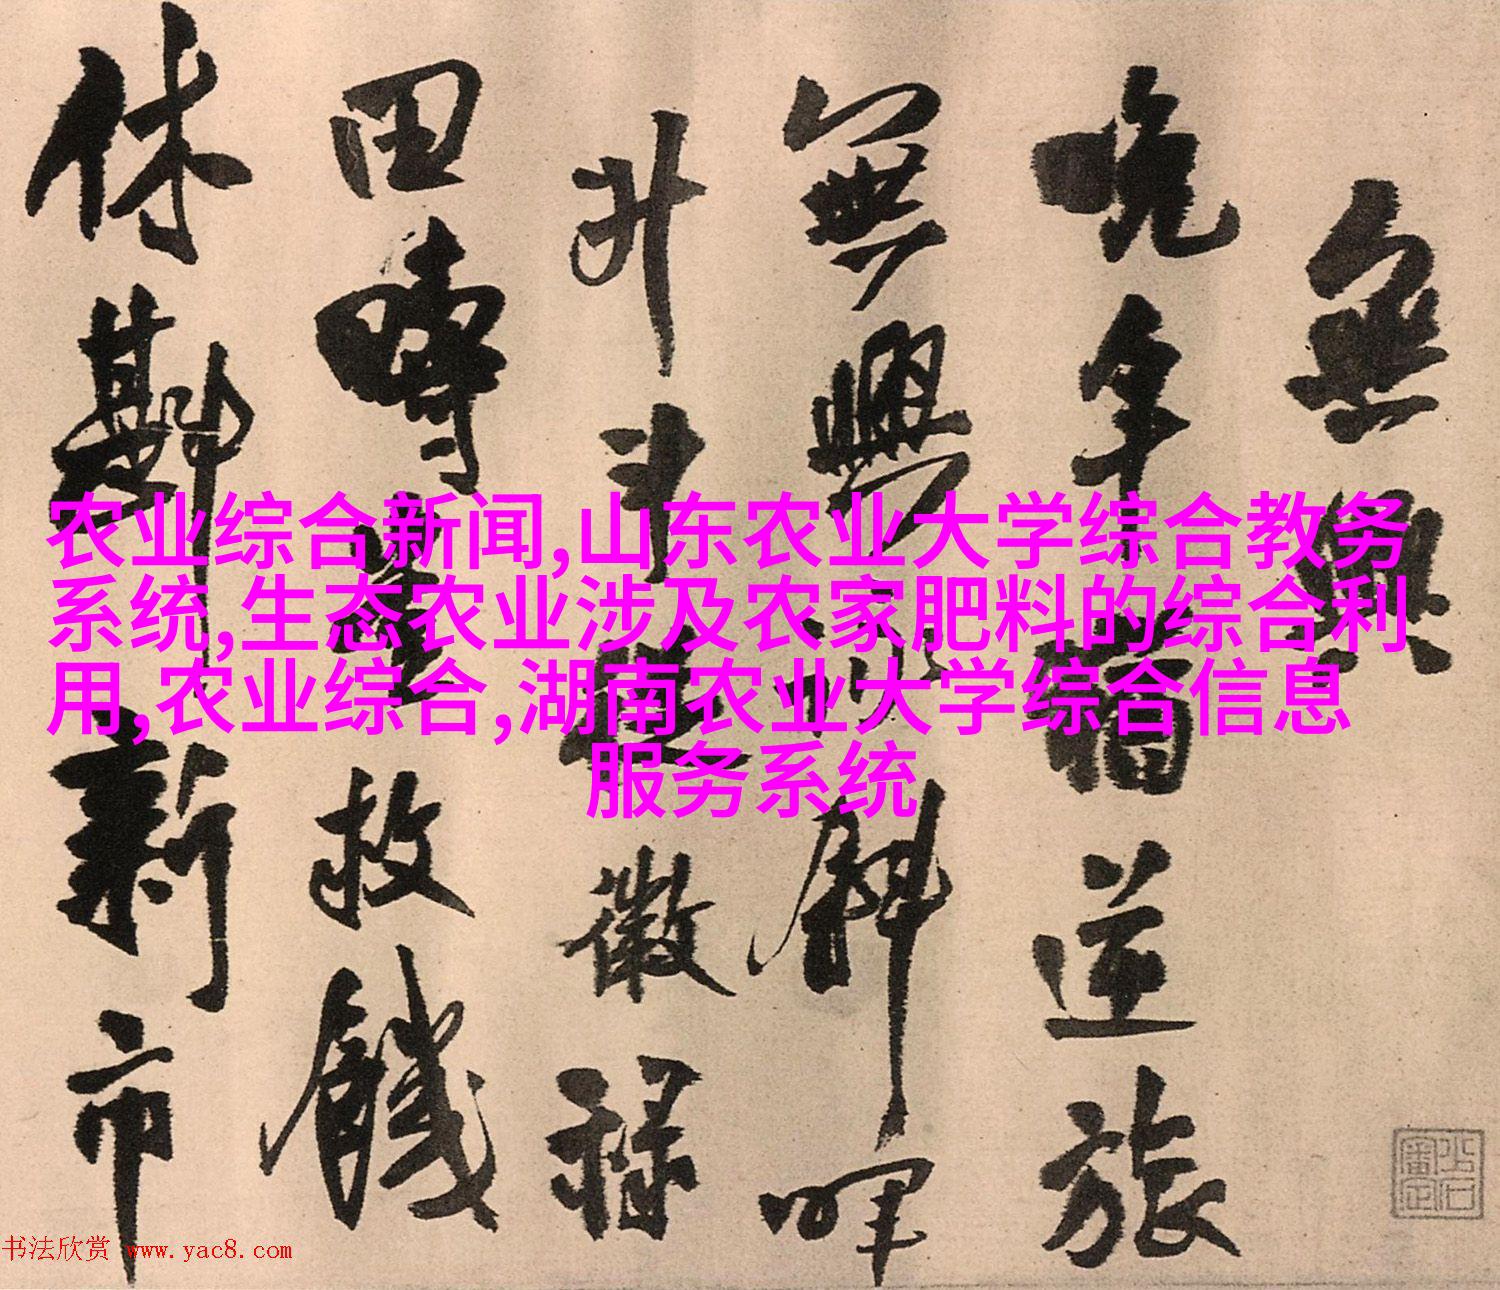 农业综合新闻,山东农业大学综合教务
系统,生态农业涉及农家肥料的综合利
用,农业综合,湖南农业大学综合信息
服务系统
無興
晚年猶逆旅
無興斜暉
升斗微祿
田疇救饑
休斟新市
书法欣赏 www.yac8.com